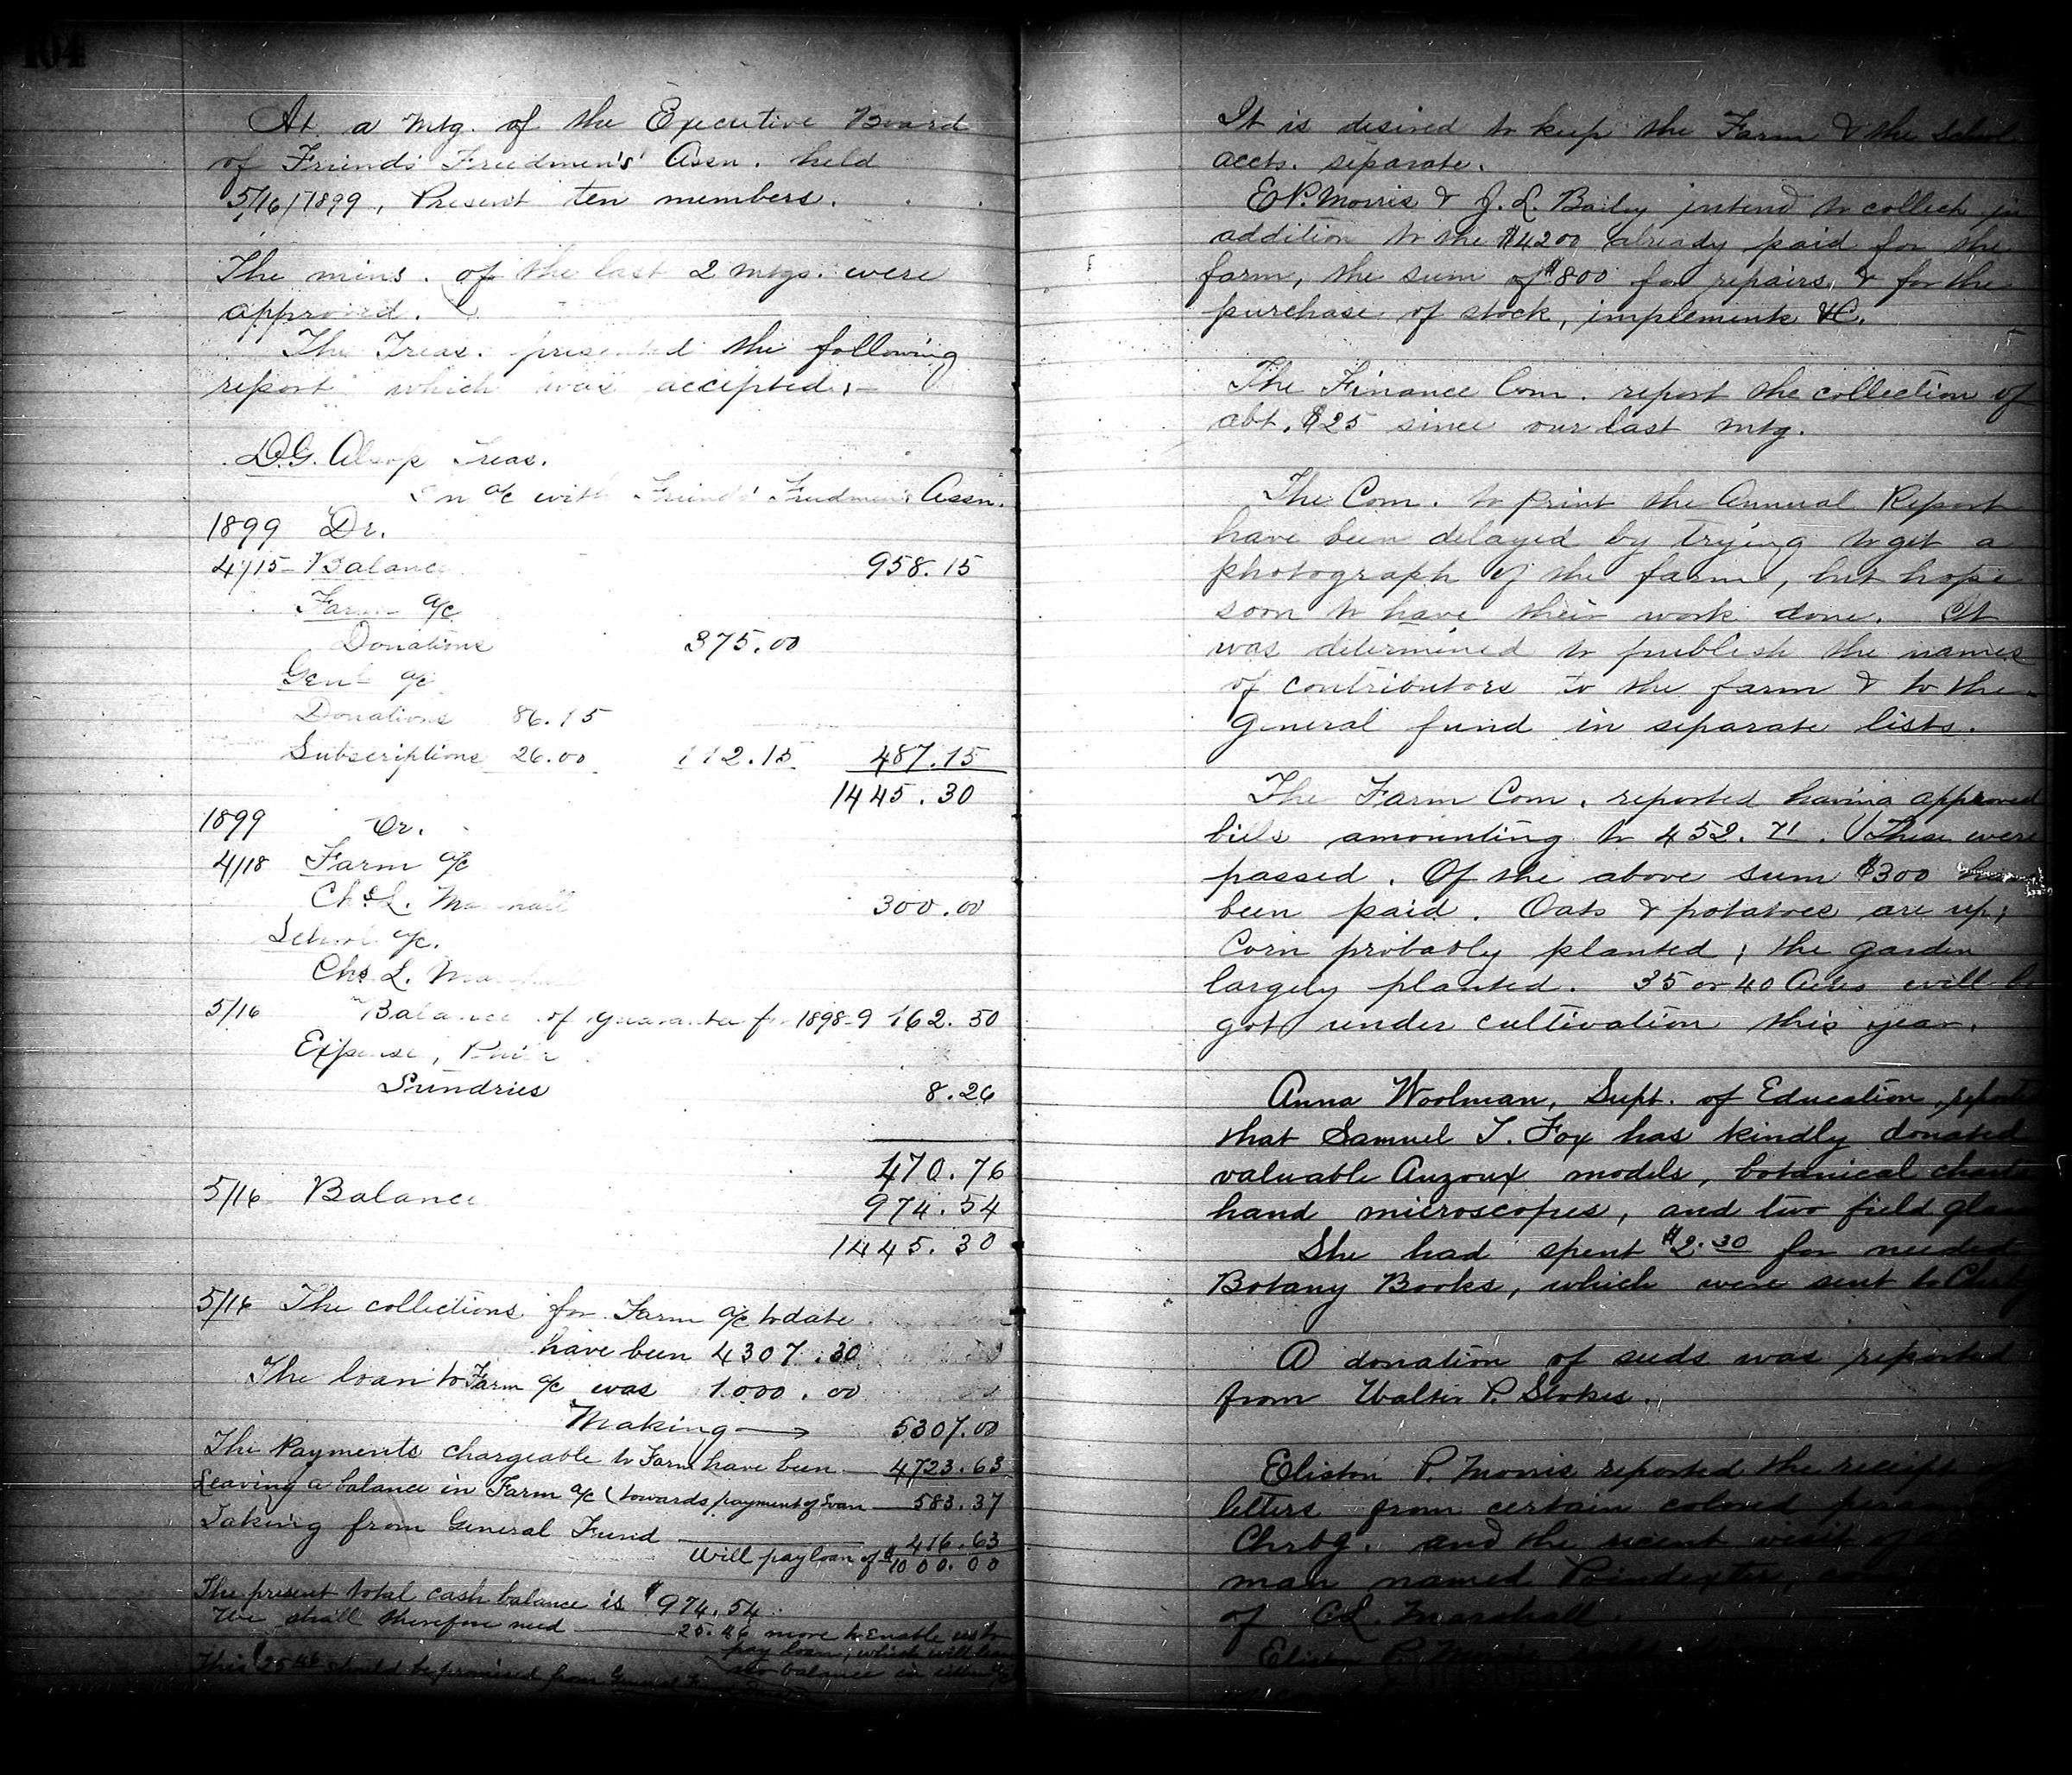 104
At a Mtg. of the Executive Board
of Friends' Freedmen's Assn. held
5/16/1899, Present ten members.
The mins. of the last 2 mtgs. were
approved.
The Treas. presented the following
report which was accepted:-
D.G. Alsop Treas.
In a/c with Friends' Freedmen's Assn.
1899 Dr.
4/15 Balance 958.15
Farm a/c
Donations 375.00
Genl a/c
Donations 86.15
Subscriptions 26.00 112.15 487.15
1445.30
1899 Cr.
4/18 Farm a/c
Chs. L. Marshall 300.00
School a/c.
Chs. L. Marshall
5/16 Balance of guarantee for 1898-9 162.50
Expense,
Sundries 8.26
470.76
5/16 Balance 974.54
1445.30
5/16 The collections for Farm a/c to date
have been 4307.30
The loan to Farm a/c was 1000.00
Making → 5307.00
The Payments chargeable to Farm have been 4723.63
Leaving a balance in Farm a/c (towards payment of loan 583.37
Taking from General Fund 416.63
Will pay loan of $1000.00
The present total cash balance is $974.54
We shall therefore need 25.46 more to enable us to
pay loan, which will leave
no balance in either a/c
This $25.46 should be promised from General
It is desired to keep the Farm & the School
accts. separate.
E.P. Morris & J. L. Baily intend to collect in
addition to the $4200 already paid for the
farm, the sum of $800 for repairs, & for the
purchase of stock, implements &C.
The Finance Com. report the collection of
abt. $25 since our last mtg.
The Com. to print the Annual Report
have been delayed by trying to get a
photograph of the farm, but hope
soon to have their work done. It
was determined to publish the names
of contributors to the farm & to the
general fund in separate lists.
The Farm Com. reported having approved
bills amounting to 452.71. These were
passed. Of the above sum $300 has
been paid. Oats & potatoes are up;
Corn probably planted; the garden
largely planted. 35 or 40 Acres will be
got under cultivation this year.
Anna Woolman, Supt. of Education, reported
that Samuel T. Fox has kindly donated
valuable Auzoux models, botanical charts
hand microscopes, and two field
She had spent $2.30 for needed
Botany Books, which were sent to Chrbg
A donation of seeds was reported
from Walter P. Stokes.
Eliston P. Morris reported the receipt of
letters from certain colored
Chrbg. and the recent visit of
man named Poindexter,
of C.L. Marshall.
Eliston P. Morris